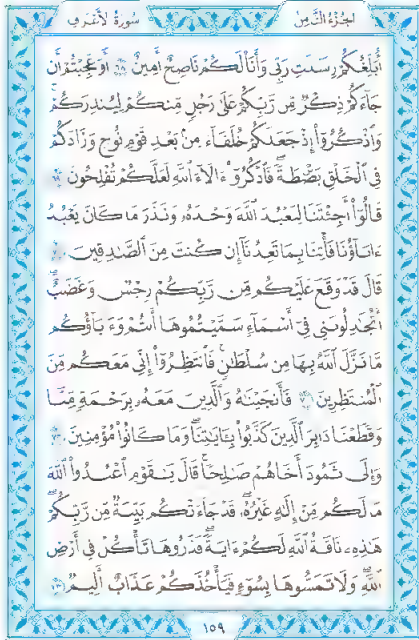 سُورَةُ الأَعْرَافِ الجُزْءُ الثَّامِنُ
أُبَلِّغُكُمْ رِسَٰلَٰتِ رَبِّى وَأَنَا۠ لَكُمْ نَاصِحٌ أَمِينٌ ٦٨ أَوَعَجِبْتُمْ أَن
جَآءَكُمْ ذِكْرٌ مِّن رَّبِّكُمْ عَلَىٰ رَجُلٍ مِّنكُمْ لِيُنذِرَكُمْ
وَٱذْكُرُوٓا۟ إِذْ جَعَلَكُمْ خُلَفَآءَ مِنۢ بَعْدِ قَوْمِ نُوحٍ وَزَادَكُمْ
فِى ٱلْخَلْقِ بَصْۜطَةً فَٱذْكُرُوٓا۟ ءَالَآءَ ٱللَّهِ لَعَلَّكُمْ تُفْلِحُونَ ٦٩
قَالُوٓا۟ أَجِئْتَنَا لِنَعْبُدَ ٱللَّهَ وَحْدَهُۥ وَنَذَرَ مَا كَانَ يَعْبُدُ
ءَابَآؤُنَا فَأْتِنَا بِمَا تَعِدُنَآ إِن كُنتَ مِنَ ٱلصَّٰدِقِينَ ٧٠
قَالَ قَدْ وَقَعَ عَلَيْكُم مِّن رَّبِّكُمْ رِجْسٌ وَغَضَبٌ
أَتُجَٰدِلُونَنِى فِىٓ أَسْمَآءٍ سَمَّيْتُمُوهَآ أَنتُمْ وَءَابَآؤُكُم
مَّا نَزَّلَ ٱللَّهُ بِهَا مِن سُلْطَٰنٍ فَٱنتَظِرُوٓا۟ إِنِّى مَعَكُم مِّنَ
ٱلْمُنتَظِرِينَ ٧١ فَأَنجَيْنَٰهُ وَٱلَّذِينَ مَعَهُۥ بِرَحْمَةٍ مِّنَّا
وَقَطَعْنَا دَابِرَ ٱلَّذِينَ كَذَّبُوا۟ بِـَٔايَٰتِنَا وَمَا كَانُوا۟ مُؤْمِنِينَ ٧٢
وَإِلَىٰ ثَمُودَ أَخَاهُمْ صَٰلِحًا قَالَ يَٰقَوْمِ ٱعْبُدُوا۟ ٱللَّهَ
مَا لَكُم مِّنْ إِلَٰهٍ غَيْرُهُۥ قَدْ جَآءَتْكُم بَيِّنَةٌ مِّن رَّبِّكُمْ
هَٰذِهِۦ نَاقَةُ ٱللَّهِ لَكُمْ ءَايَةً فَذَرُوهَا تَأْكُلْ فِىٓ أَرْضِ
ٱللَّهِ وَلَا تَمَسُّوهَا بِسُوٓءٍ فَيَأْخُذَكُمْ عَذَابٌ أَلِيمٌ ٧٣
١٥٩